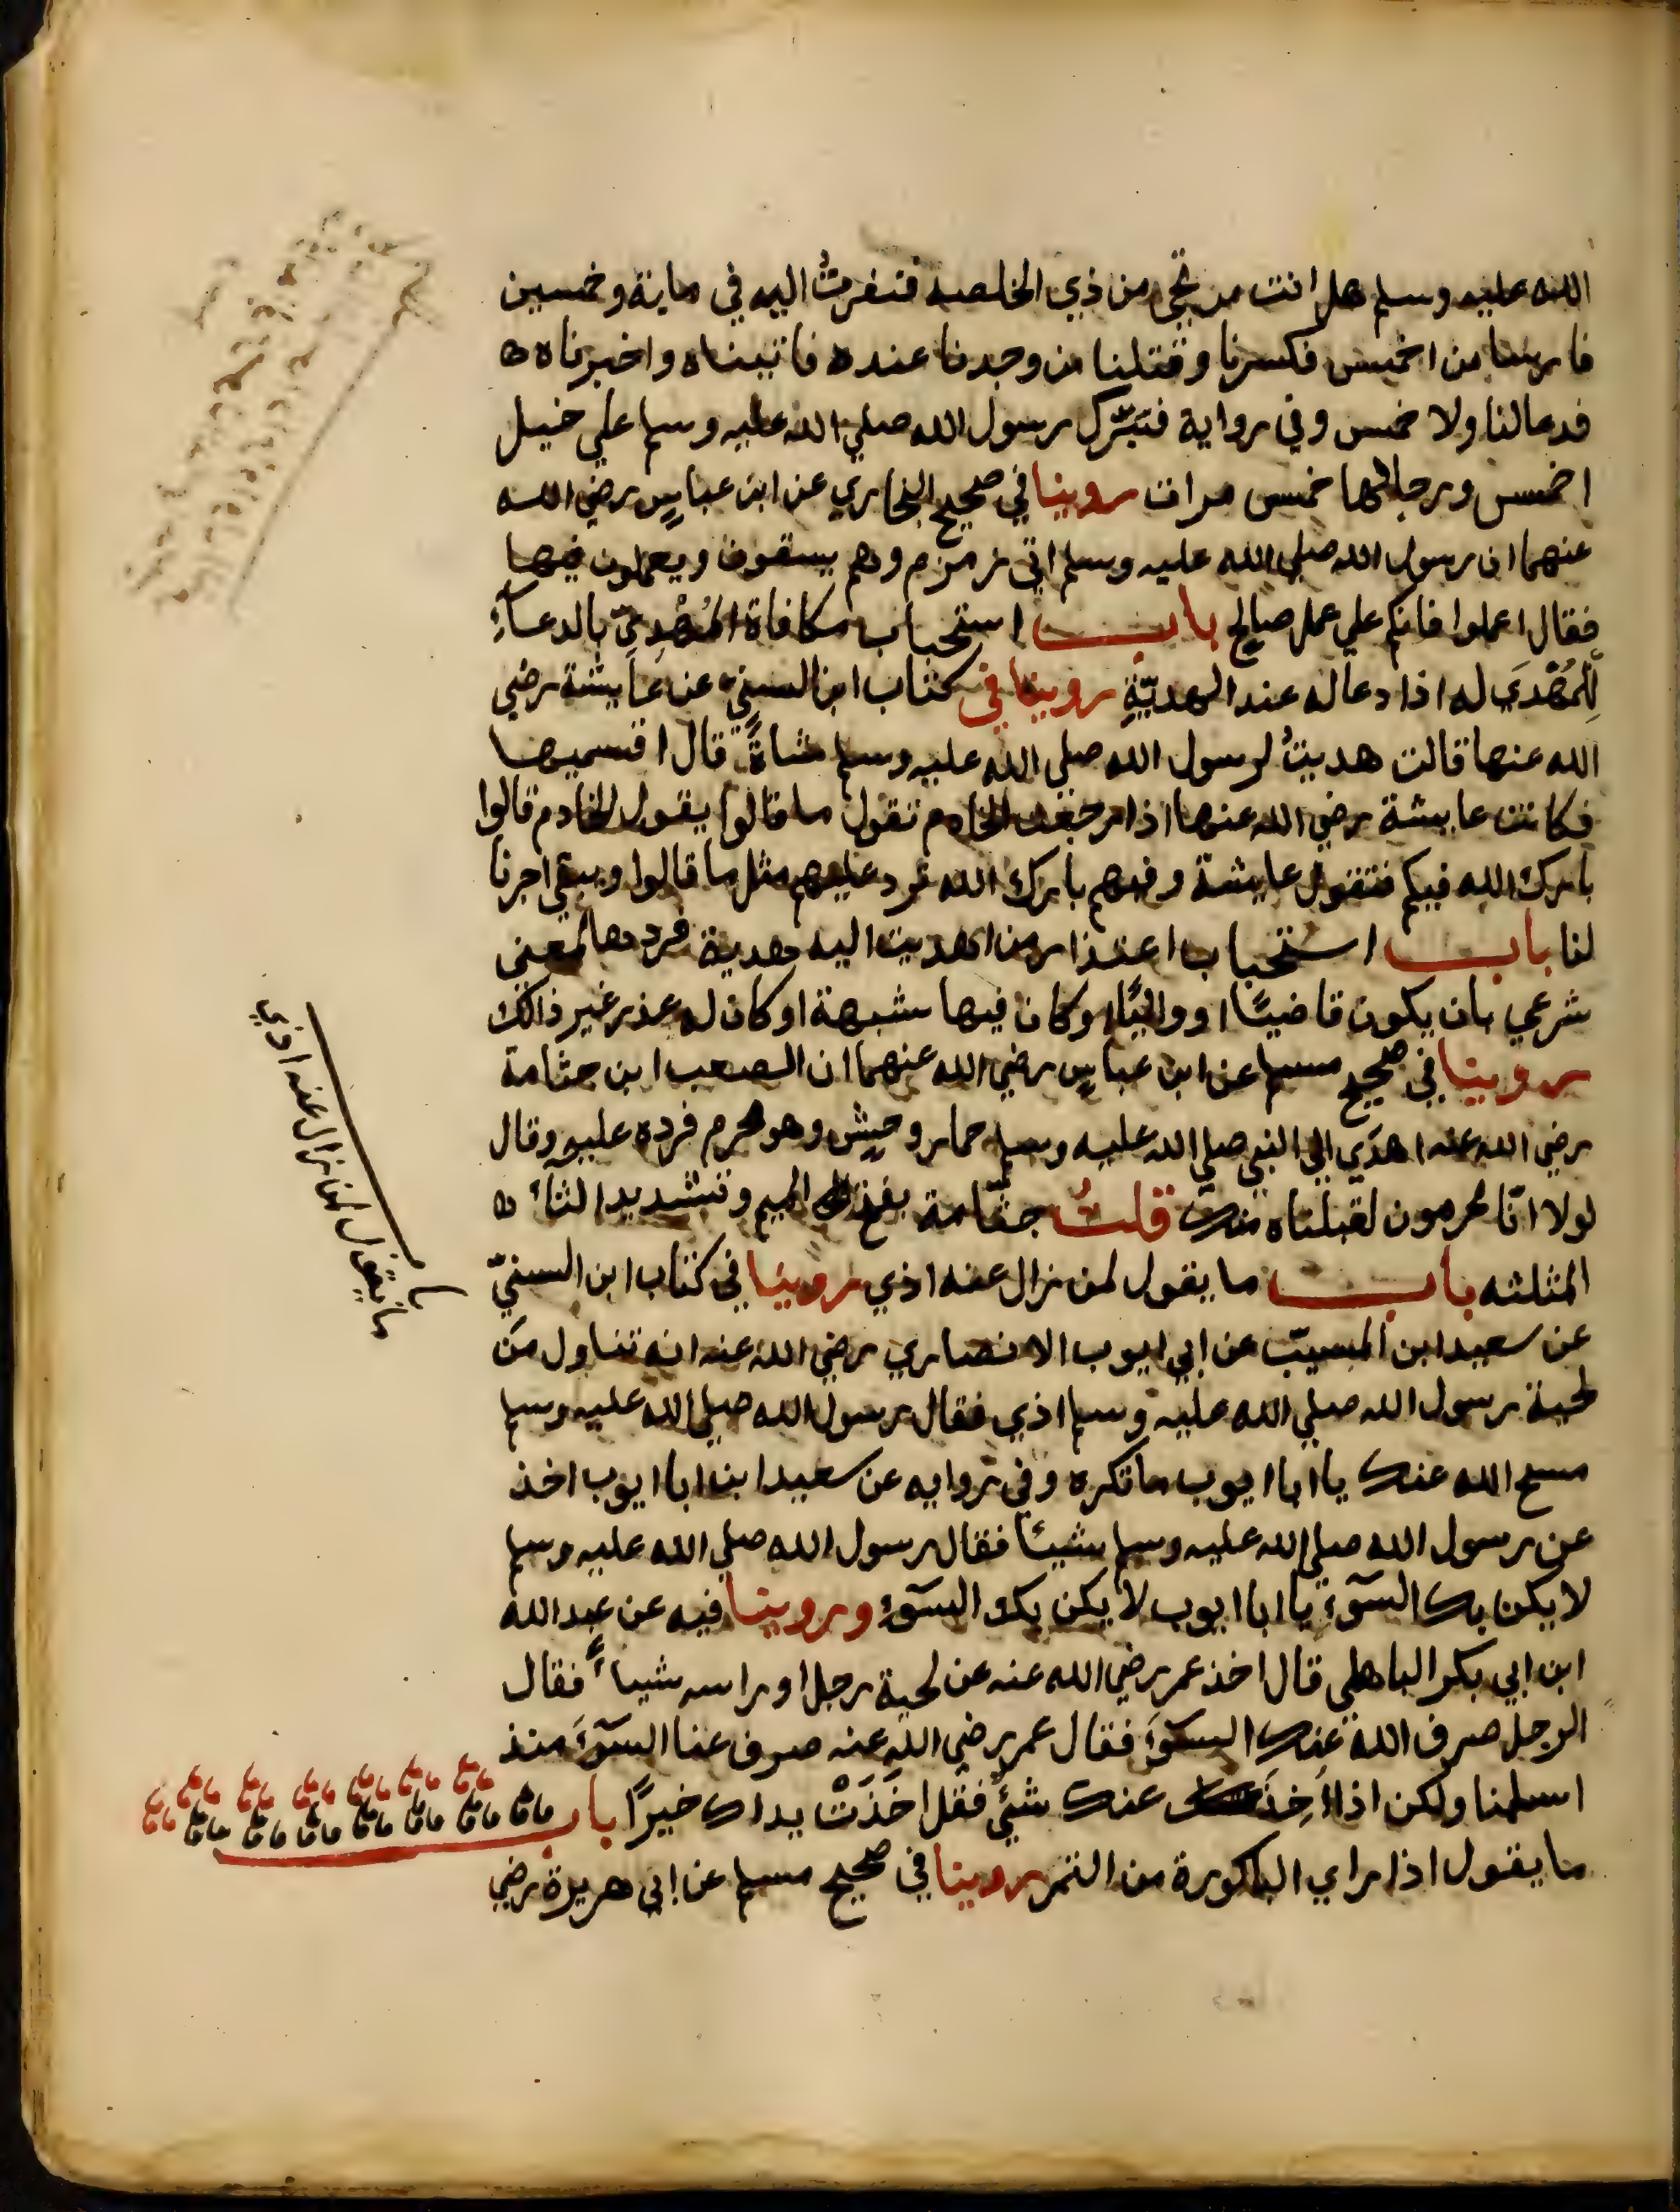 الله عليه وسلم هل انت مريحي من ذي الخلصه فنفرتُ اليه في ماية وخمسين
فارسا من احمس فكسرنا وقتلنا من وجدنا عنده فاتيناه واخبرناه
فدعا لنا ولا حمس وفي رواية فتبرّك رسول الله صلي الله عليه وسلم علي خيل
احمس ورجالها خمس مرات روينا في صحيح البخاري عن ابن عباسٍ رضي الله
عنهما ان رسول الله صلي الله عليه وسلم اتي زمزم وهم يسقون ويعملون فيها
فقال اعملوا فانكم علي عمل صالح باب استحباب مكافاة المُهْدِيّ بالدعآءِ
لِلْمُهْدَي له اذا دعا له عند الهديّةِ روينا في كتاب ابن السني عن عايشة رضي
الله عنها قالت هديتُ لرسول الله صلي الله عليه وسلم شاةً قال اقسميها
فكانت عايشة رضي الله عنها اذا رجعت الخادم تقول ما قالوا يقول الخادم قالوا
بارك الله فيكم فتقول عايشة وفيهم بارك الله نرد عليهم مثل ما قالوا ويبقي اجرنا
لنا باب استحباب اعتذار من اهديت اليه هدية فردها لمعني
شرعي بان يكون قاضيًا او واليًا او كان فيها شبهة او كان له عذر غير ذالك
روينا في صحيح مسلم عن ابن عباسٍ رضي الله عنهما ان الصعب ابن جثامة
رضي الله عنه اهدَي الي النبي صلي الله عليه وسلم حمار وحشٍ وهو محرم فرده عليه وقال
لولا انّا محرمون لقبلناه منك قلتُ جثّامة بفتح الجيم وتشديد الثاء
المثلثه باب ما يقول لمن زال عنه اذي روينا في كتاب ابن السنيّ
عن سعيد ابن المسيّب عن ابي ايوب الانصاري رضي الله عنه انه تناول من
لحية رسول الله صلي الله عليه وسلم اذي فقال رسول الله صلي الله عليه وسلم
مسح الله عنك يا ابا ايوب ما تكره وفي روايه عن سعيد ابن ابا ايوب اخذ
عن رسول الله صلي الله عليه وسلم شيئا فقال رسول الله صلي الله عليه وسلم
لا يكن بك السوٓء يا ابا ايوب لا يكن بك السوٓء وروينا فيه عن عبد الله
ابن ابي بكر الباهلي قال اخذ عمر رضي الله عنه عن لحية رجل او راسه شياءً فقال
الرجل صرف الله عنك السوٓءَ فقال عمر رضي الله عنه صرف عنا السوٓءَ منذ
اسلمنا ولكن اذا اُخِذَ عنك شيءٌ فقل اخَذَتْ يداك خيرًا باب
ما يقول اذا راي الباكورة من الثمر روينا في صحيح مسلم عن ابي هريرة رضي
باب
ما يقول لمن زال عنه اذي